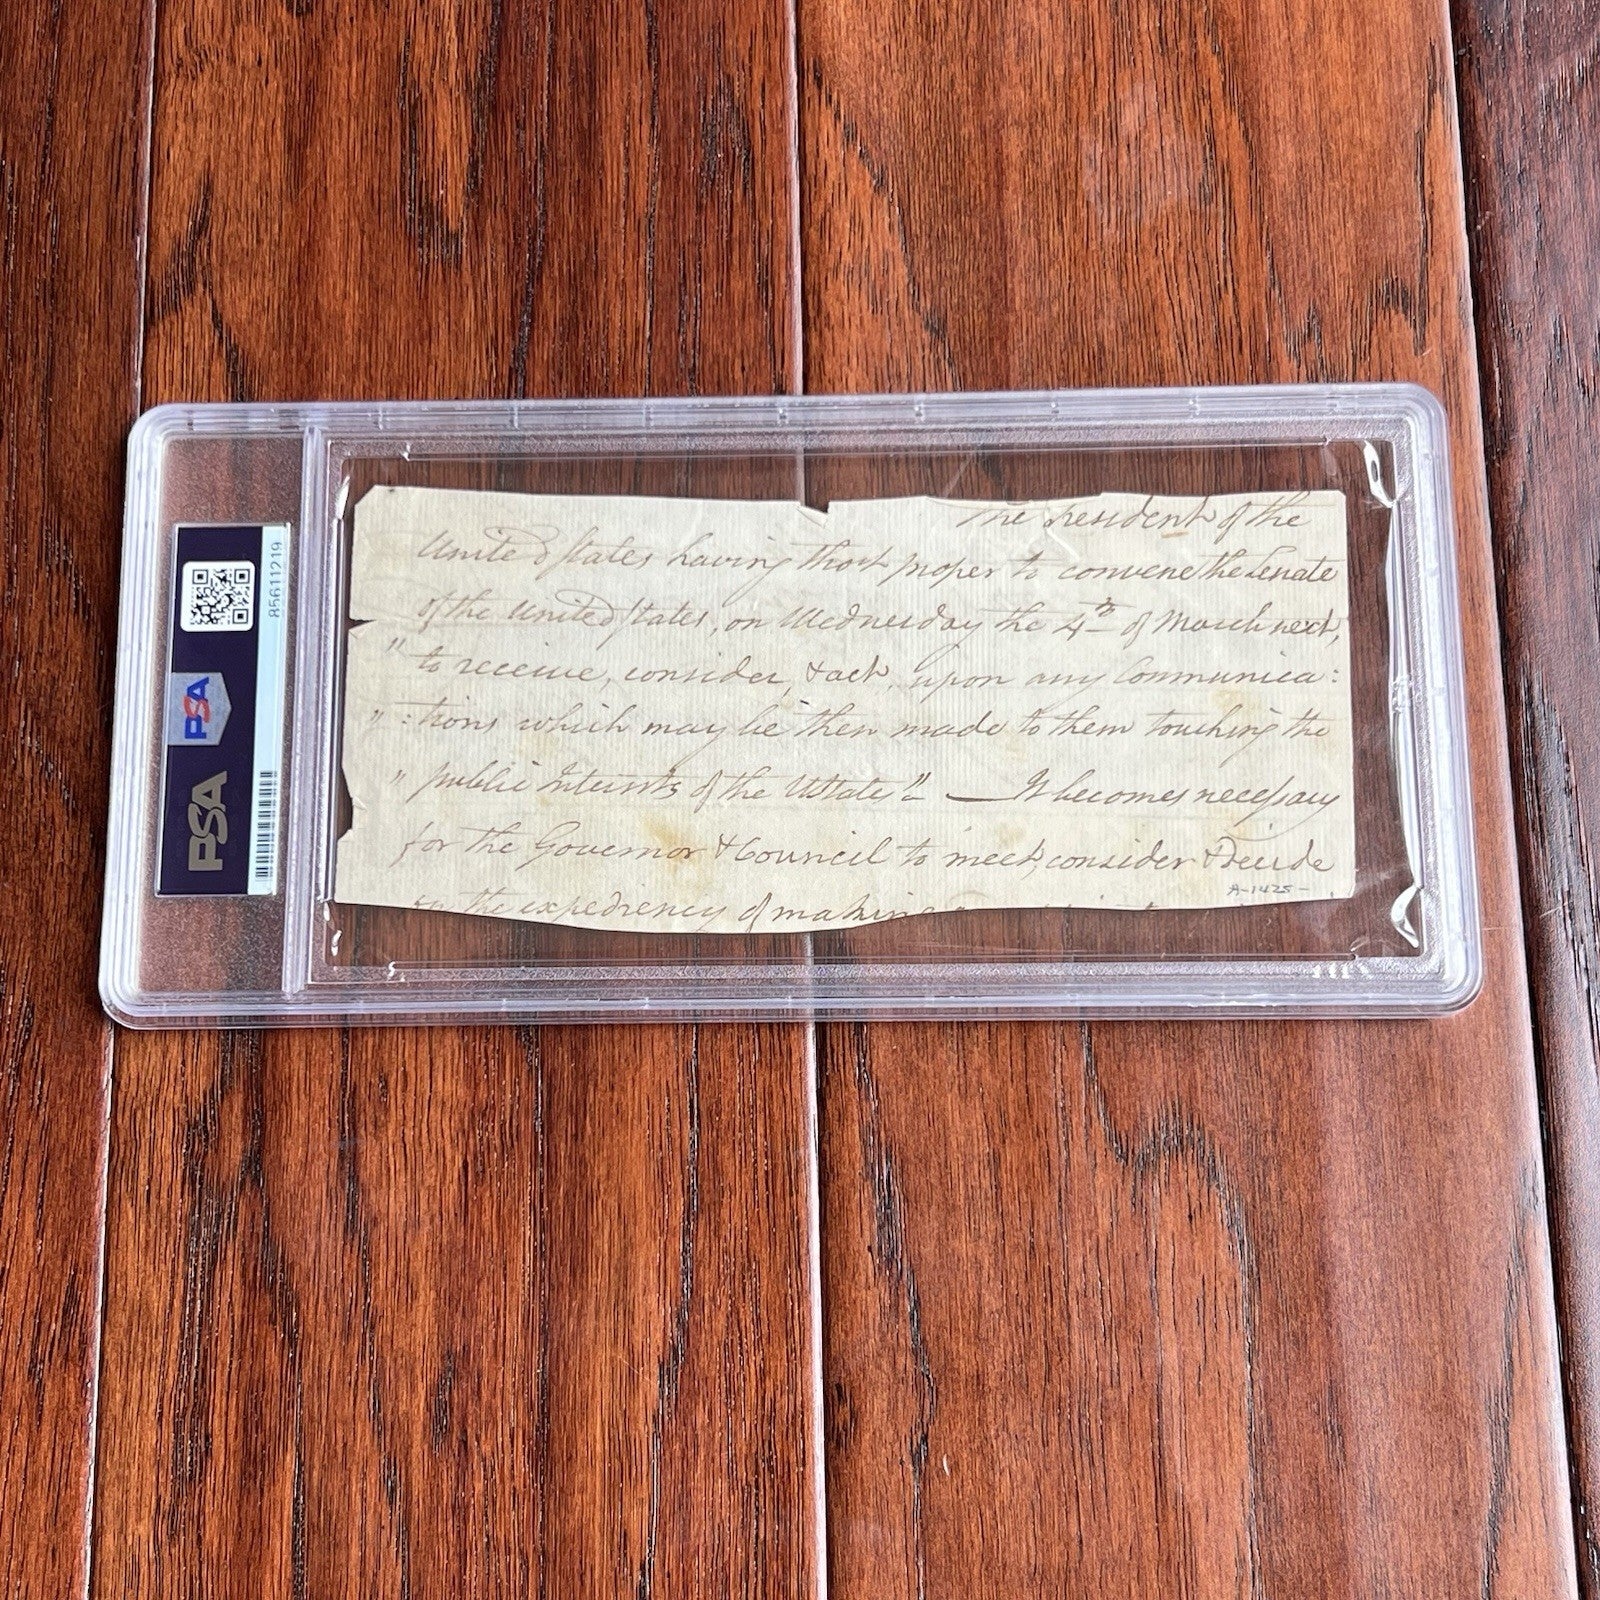 The President of the
United States having thot proper to convene the Senate
of the United States, on Wednesday the 4th of March next,
" to receive, consider, & act, upon any Communica:
" :tions which may be then made to them touching the
" public Interests of the UStates" — It becomes necessary
for the Governor & Council to meet, consider & Decide
the expediency of making
A-1425-
85611219
PSA
PSA